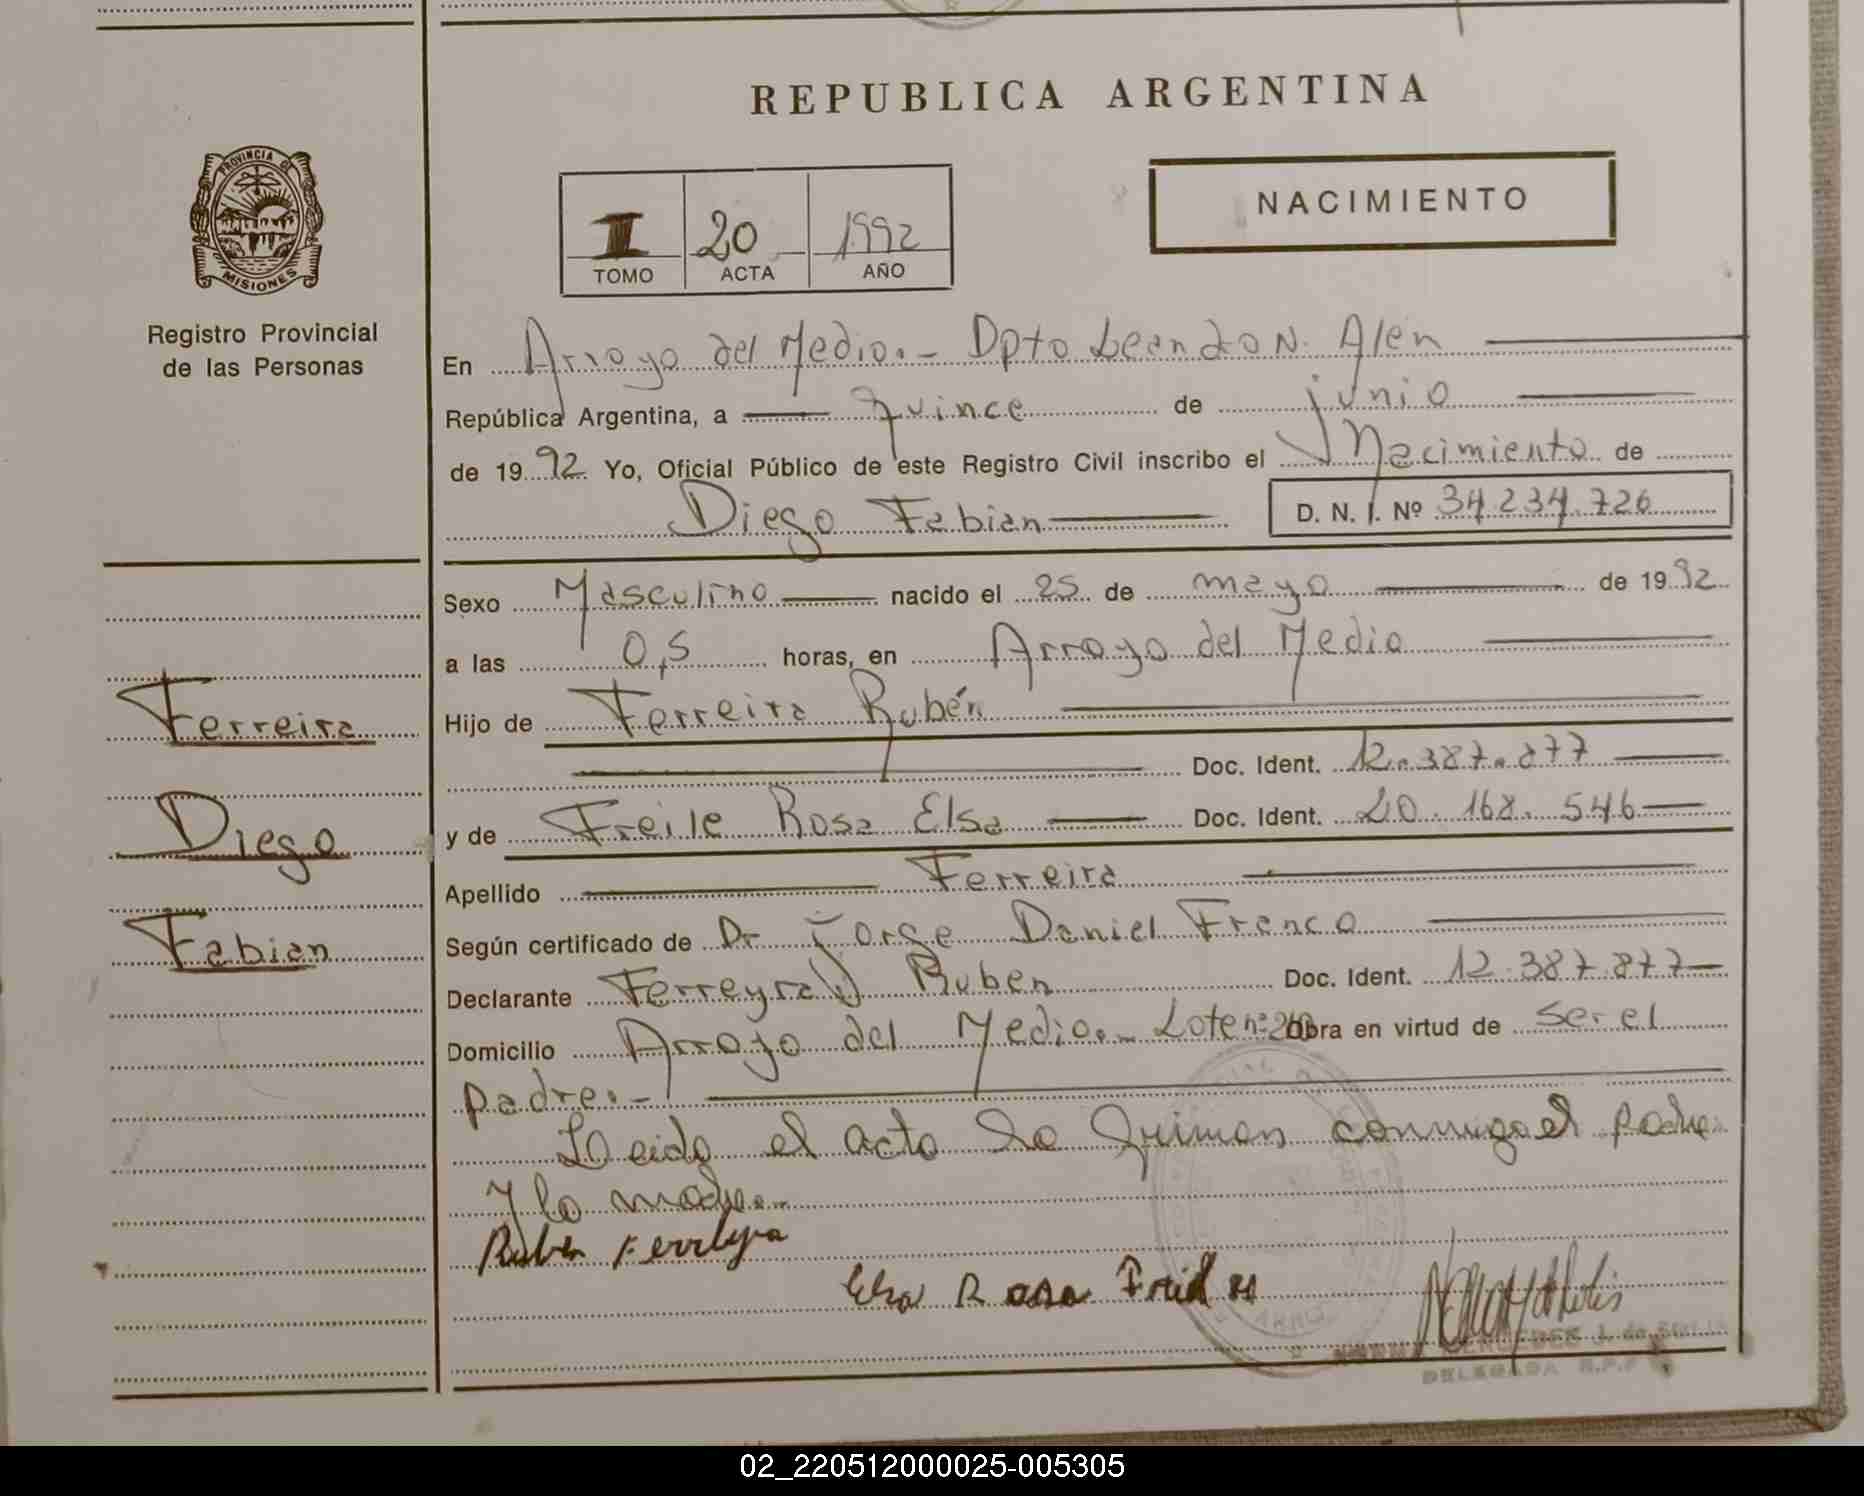 REPUBLICA ARGENTINA
NACIMIENTO
I 20 1992
TOMO ACTA AÑO
PROVINCIA DE
MISIONES
Registro Provincial
de las Personas
Ferreira
Diego
Fabian
En Arroyo del Medio.- Dpto Leandro N. Alen
República Argentina, a quince de junio
de 1992 Yo, Oficial Público de este Registro Civil inscribo el Nacimiento de
Diego Fabian D. N. I. Nº 34.234.726
Sexo Masculino nacido el 25 de mayo de 1992
a las 0,5 horas, en Arroyo del Medio
Hijo de Ferreira Rubén
Doc. Ident. 12.387.877
y de Freile Rosa Elsa Doc. Ident. 20.168.546
Apellido Ferreira
Según certificado de Dr Jorge Daniel Franco
Declarante Ferreyra Ruben Doc. Ident. 12.387.877
Domicilio Arroyo del Medio.- Lote nº obra en virtud de ser el
padre.-
Leida el acta la firman conmigo el padre
y la madre.-
Ruben Ferreyra
Elsa Rosa
DELEGADA R.P.P
02_220512000025-005305